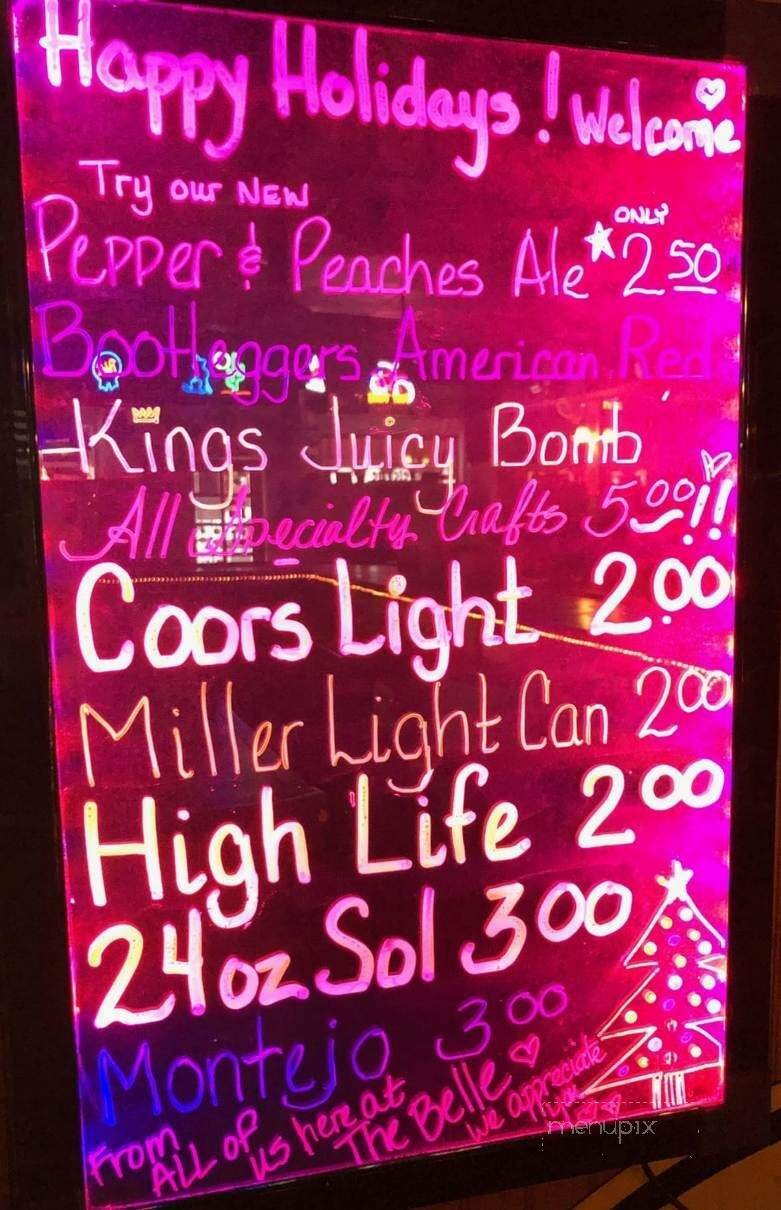 Happy Holidays! Welcome
Try our NEW
Pepper & Peaches Ale ONLY 2.50
Bootleggers American Red
Kings Juicy Bomb
All Specialty Crafts 5.00!!
Coors Light 2.00
Miller Light Can 2.00
High Life 2.00
24oz Sol 3.00
Montejo 3.00
From ALL of us here at The Belle
we appreciate
menupix